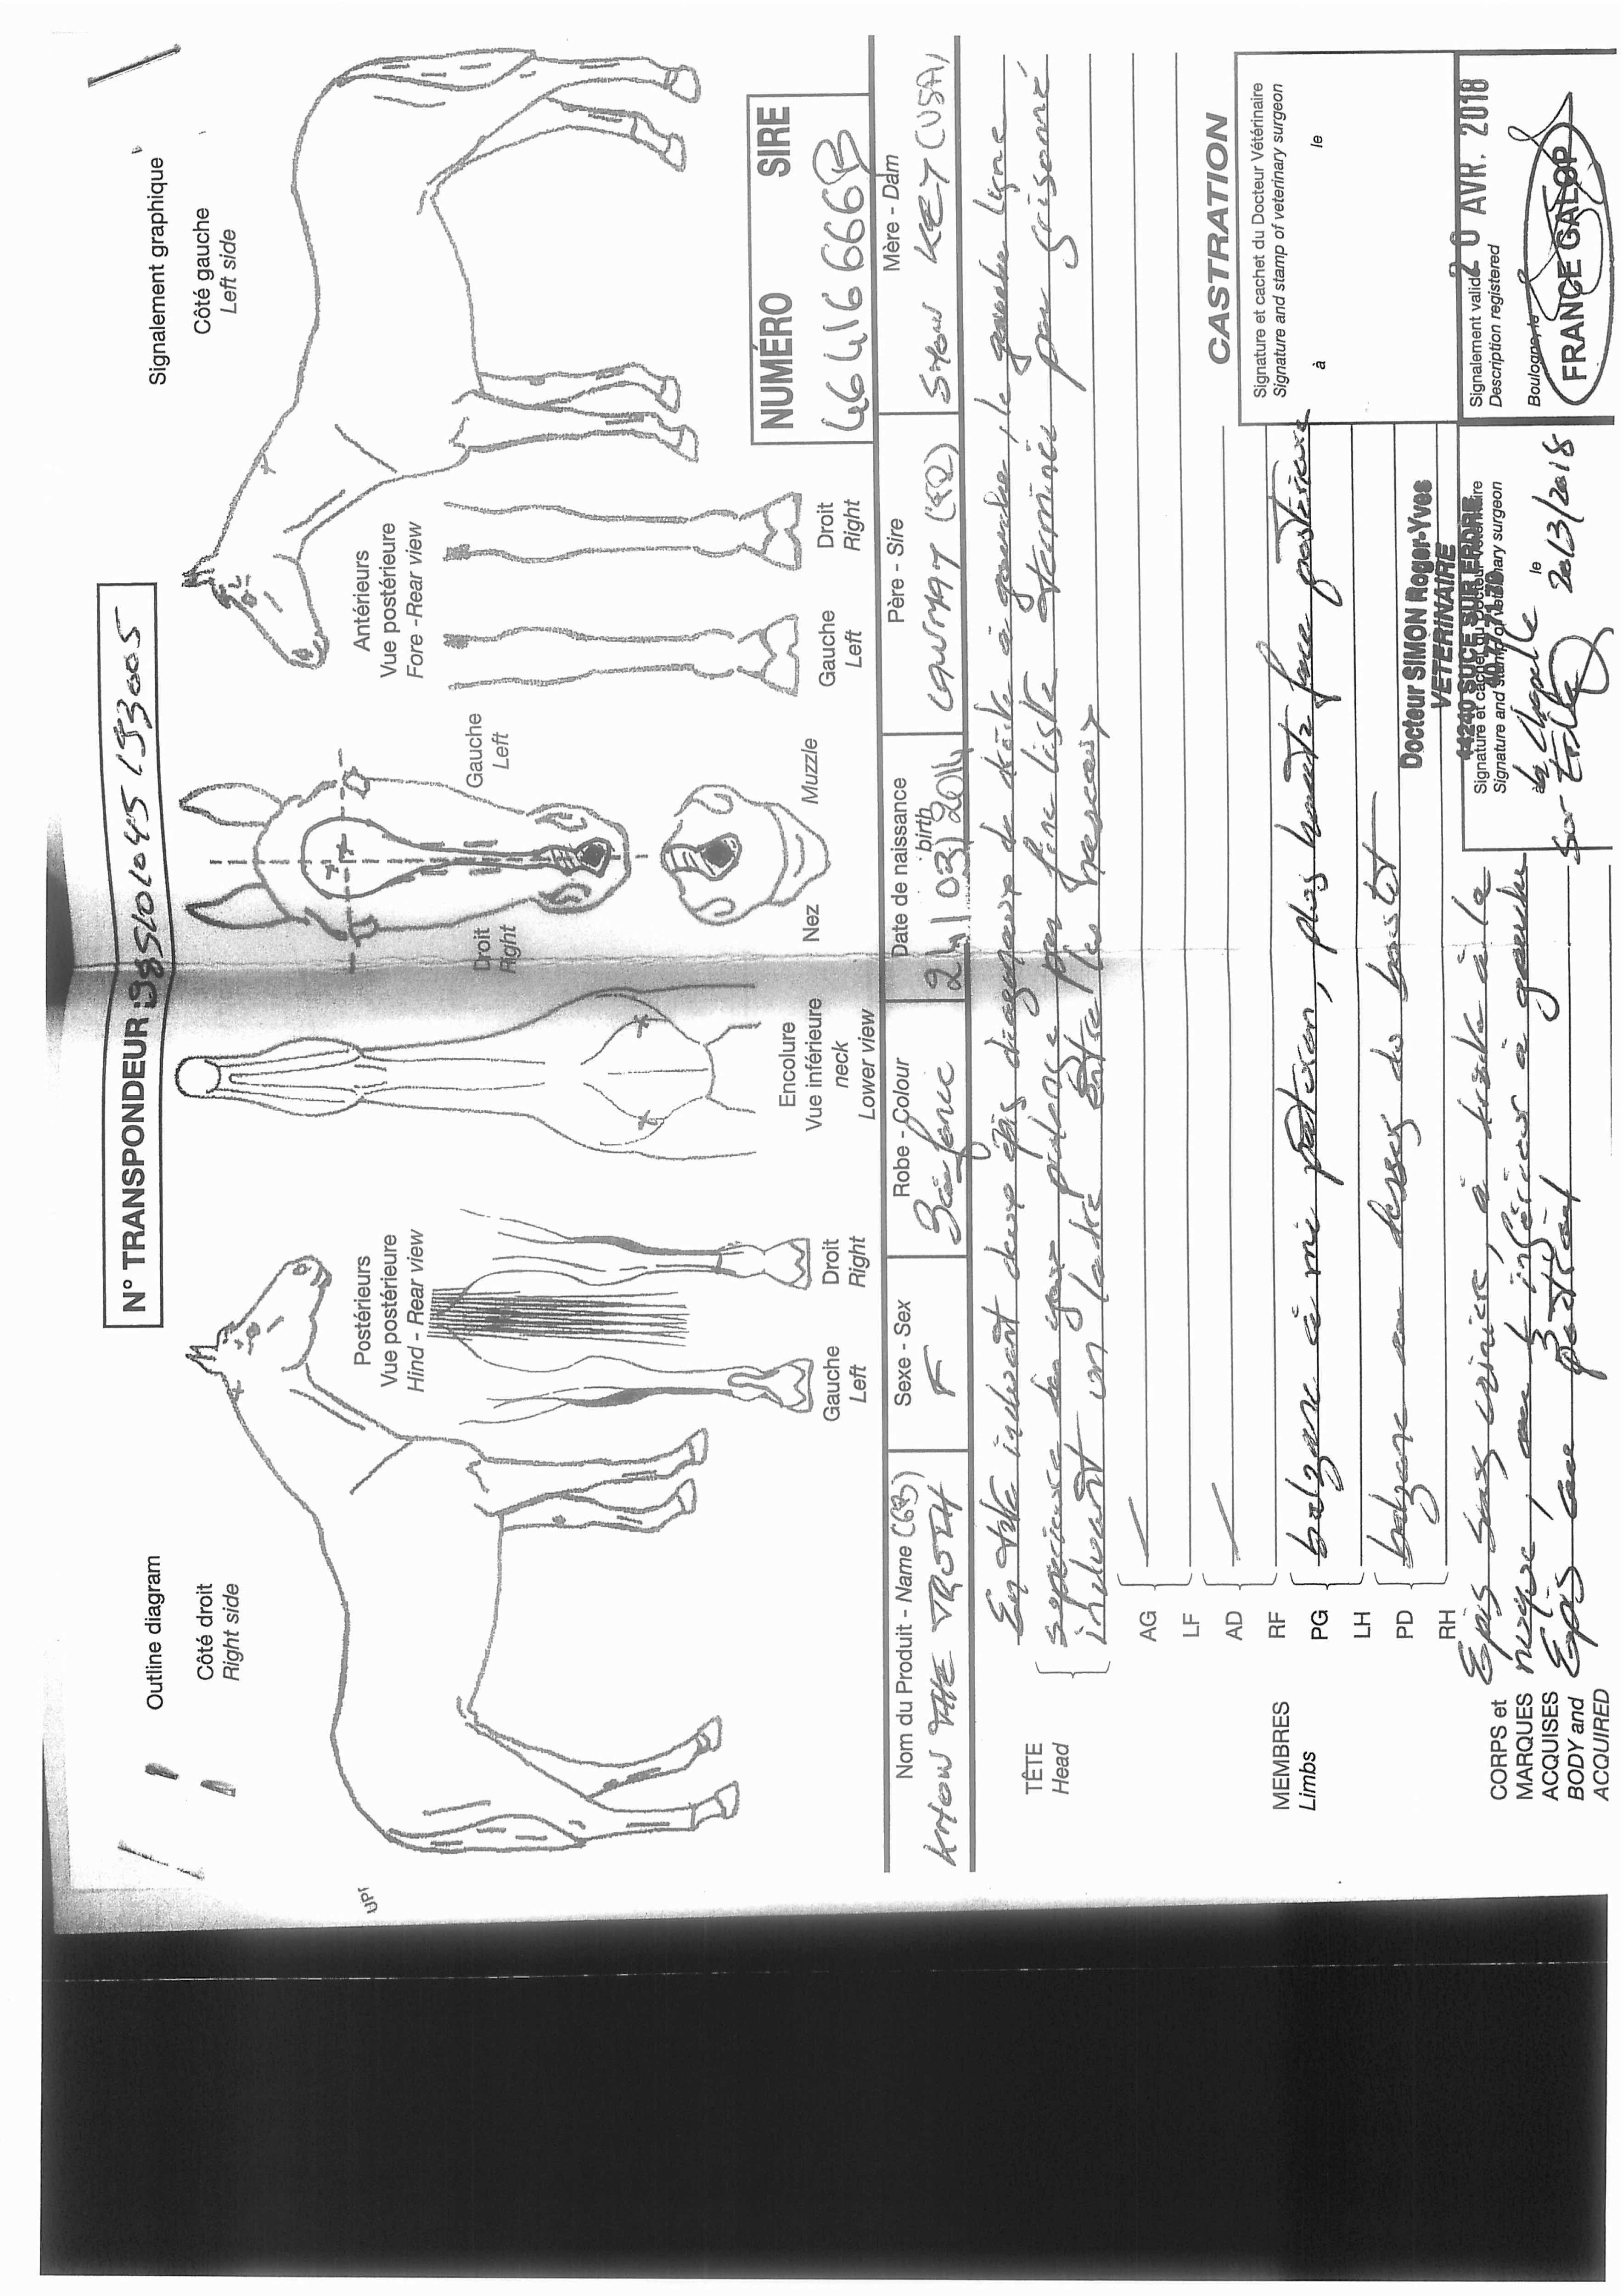 N° TRANSPONDEUR
Outline diagram
Signalement graphique
Côté droit
Right side
Côté gauche
Left side
UPI
Postérieurs
Vue postérieure
Hind - Rear view
Gauche
Left
Droit
Right
Encolure
Vue inférieure
neck
Lower view
Droit
Right
Gauche
Left
Nez
Muzzle
Antérieurs
Vue postérieure
Fore -Rear view
Gauche
Left
Droit
Right
NUMÉRO SIRE
Nom du Produit - Name (GB)
KNOW THE TRUTH
Sexe - Sex
F
Robe - Colour
Date de naissance
birth
Père - Sire
Mère - Dam
SHOW KEY (USA)
TÊTE
Head
En tête incluant deux épis diagonaux de droite à gauche, le gauche ligne
incluant un ladre entre les naseaux
AG
LF
AD
RF
PG
LH
PD
RH
MEMBRES
Limbs
balzane à mi paturon, plus haute face postérieure
balzane au dessus du boulet
CASTRATION
Signature et cachet du Docteur Vétérinaire
Signature and stamp of veterinary surgeon
à le
CORPS et
MARQUES
ACQUISES
BODY and
ACQUIRED
Epis sous crinière, à droite à la
nuque, au 1/3 inférieur à gauche
Epis au poitrail
Docteur SIMON Roger-Yves
VETERINAIRE
44240 SUCE SUR ERDRE
Signature et cachet du Docteur Vétérinaire
Signature and stamp of veterinary surgeon
à le
sur Erdre 20/3/2018
Signalement validé 20 AVR. 2018
Description registered
Boulogne, le
FRANCE GALOP